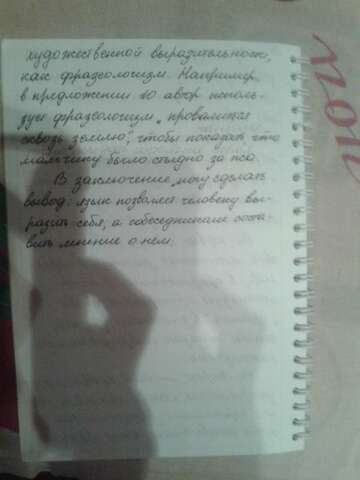 художественной выразительности,
как фразеологизм. Например,
в предложении 10 автор исполь-
зует фразеологизм „провалиться
сквозь землю", чтобы показать что
мальчику было стыдно за пса.
В заключение, могу сделать
вывод: язык позволяет человеку вы-
разить себя, а собеседникам соста-
вить мнение о нём.